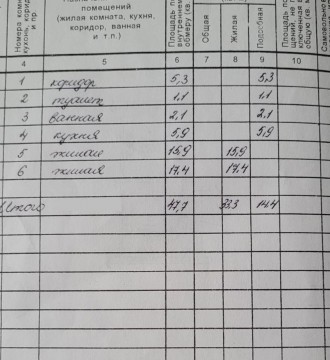 Номера комнат, кухонь, корид. и пр.
помещений
(жилая комната, кухня,
коридор, ванная
и т.п.)
Площадь по внутреннему обмеру (кв.
Общая
Жилая
Подсобная
4 5 6 7 8 9 10
1 коридор 5,3 5,3
2 туалет 1,1 1,1
3 ванная 2,1 2,1
4 кухня 5,9 5,9
5 жилая 15,9 15,9
6 жилая 17,4 17,4
Итого 47,7 33,3 14,4